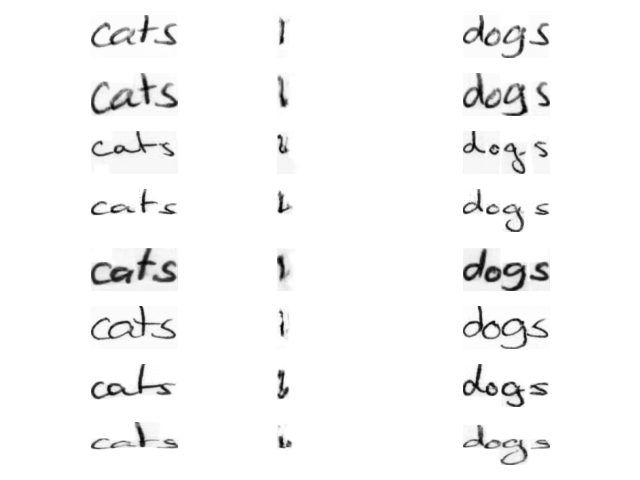 cats dogs
cats dogs
cats dogs
cats dogs
cats dogs
cats dogs
cats dogs
cats dogs